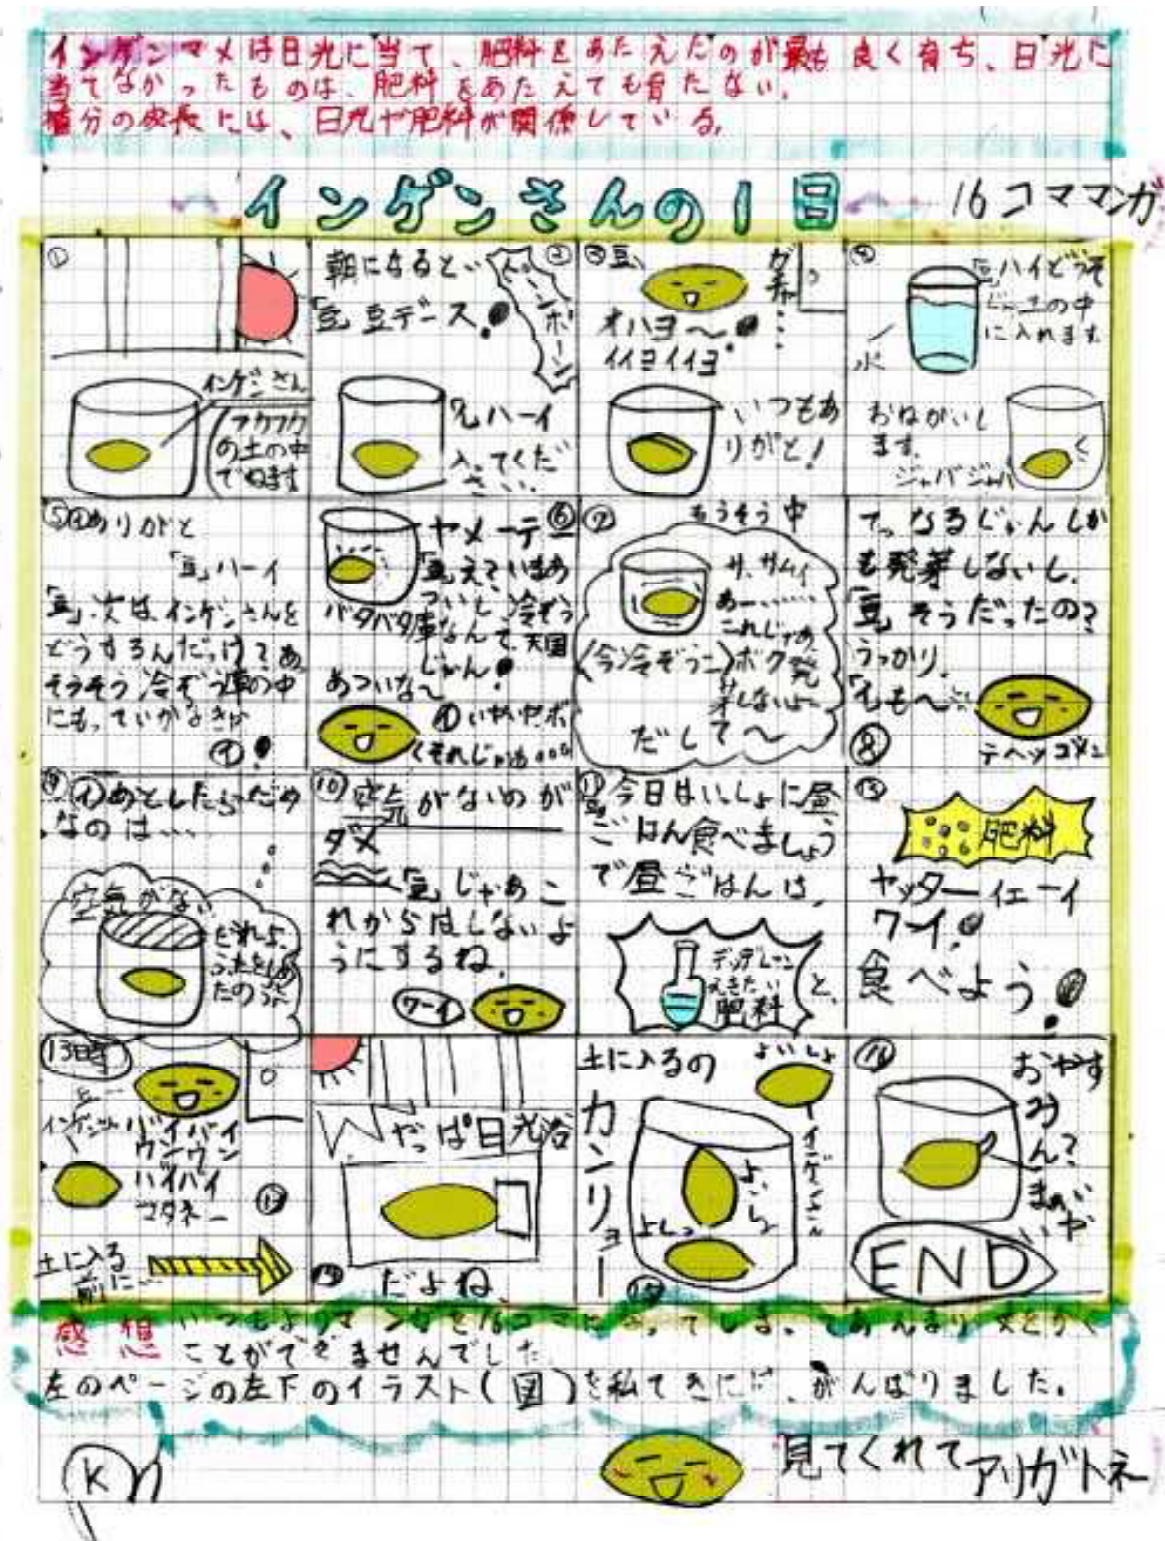 インゲンマメは日光に当て、肥料をあたえたのが最も良く育ち、日光に
当てなかったものは、肥料をあたえても育たない。
植分の成長には、日光や肥料が関係している。
インゲンさんの1日
16コママンガ
①
インゲンさん
フカフカ
の土の中
でねます
②
朝になると…
ピーンポーン
「豆」豆デース!
「イ」ハーイ
入ってくだ
さい。
③豆
ガチャ…
オハヨ〜
イイヨイイヨ
いつもあ
りがと!
④
「豆」ハイどうぞ
土の中
に入れます
水
おねがいし
ます。
ジャバジャバ
⑤イありがと
「豆」ハーイ
「豆」次は、インゲンさんを
どうするんだっけ?あ
そうそう冷ぞう庫の中
にもっていかなきゃ
⑥
ヤメーテー
「豆」え?いまあ
ついし、冷ぞう
庫なんて、天国
じゃん!
バタバタ
あついな〜
イいやいやボ
くそれじゃあ…
⑦
もうそう中
サ、サムイ
あー……
これじゃあ
ボク発
芽しないよ〜
(今冷ぞうこ)
だして〜
てっなるじゃんしか
も発芽しないし、
「豆」そうだったの?
うっかり。
「イ」も〜
⑧
テヘッゴメン
⑨イあとしたらだめ
なのは…
空気がない
だれよ、
ふたをしめ
たのっ
⑩空気がないのが
ダメ
「豆」じゃあこ
れからはしないよ
うにするね。
ワーイ
⑪
豆今日はいっしょに昼
ごはん食べましょう
で昼ごはんは、
えきたい
肥料
と、
⑫
肥料
ヤッターイエーイ
ワーイ!
食べよう!
13時
豆
インゲンさん
バイバイ
ウンウン
バイバイ
マタネー
⑬
土に入る
前に…
やっぱ日光浴
⑭
だよね、
土に入るの
よいしょ
カンリョー
インゲンさん
よいしょ
よしっ
⑮
⑯
おやす
み
ん?
まぁいいや
END
感想
いつもよりマンガを16コマになってしまってあんまり文をかく
ことができませんでした
左のページの左下のイラスト(図)を私てきには、がんばりました。
K
見てくれてアリガトネ